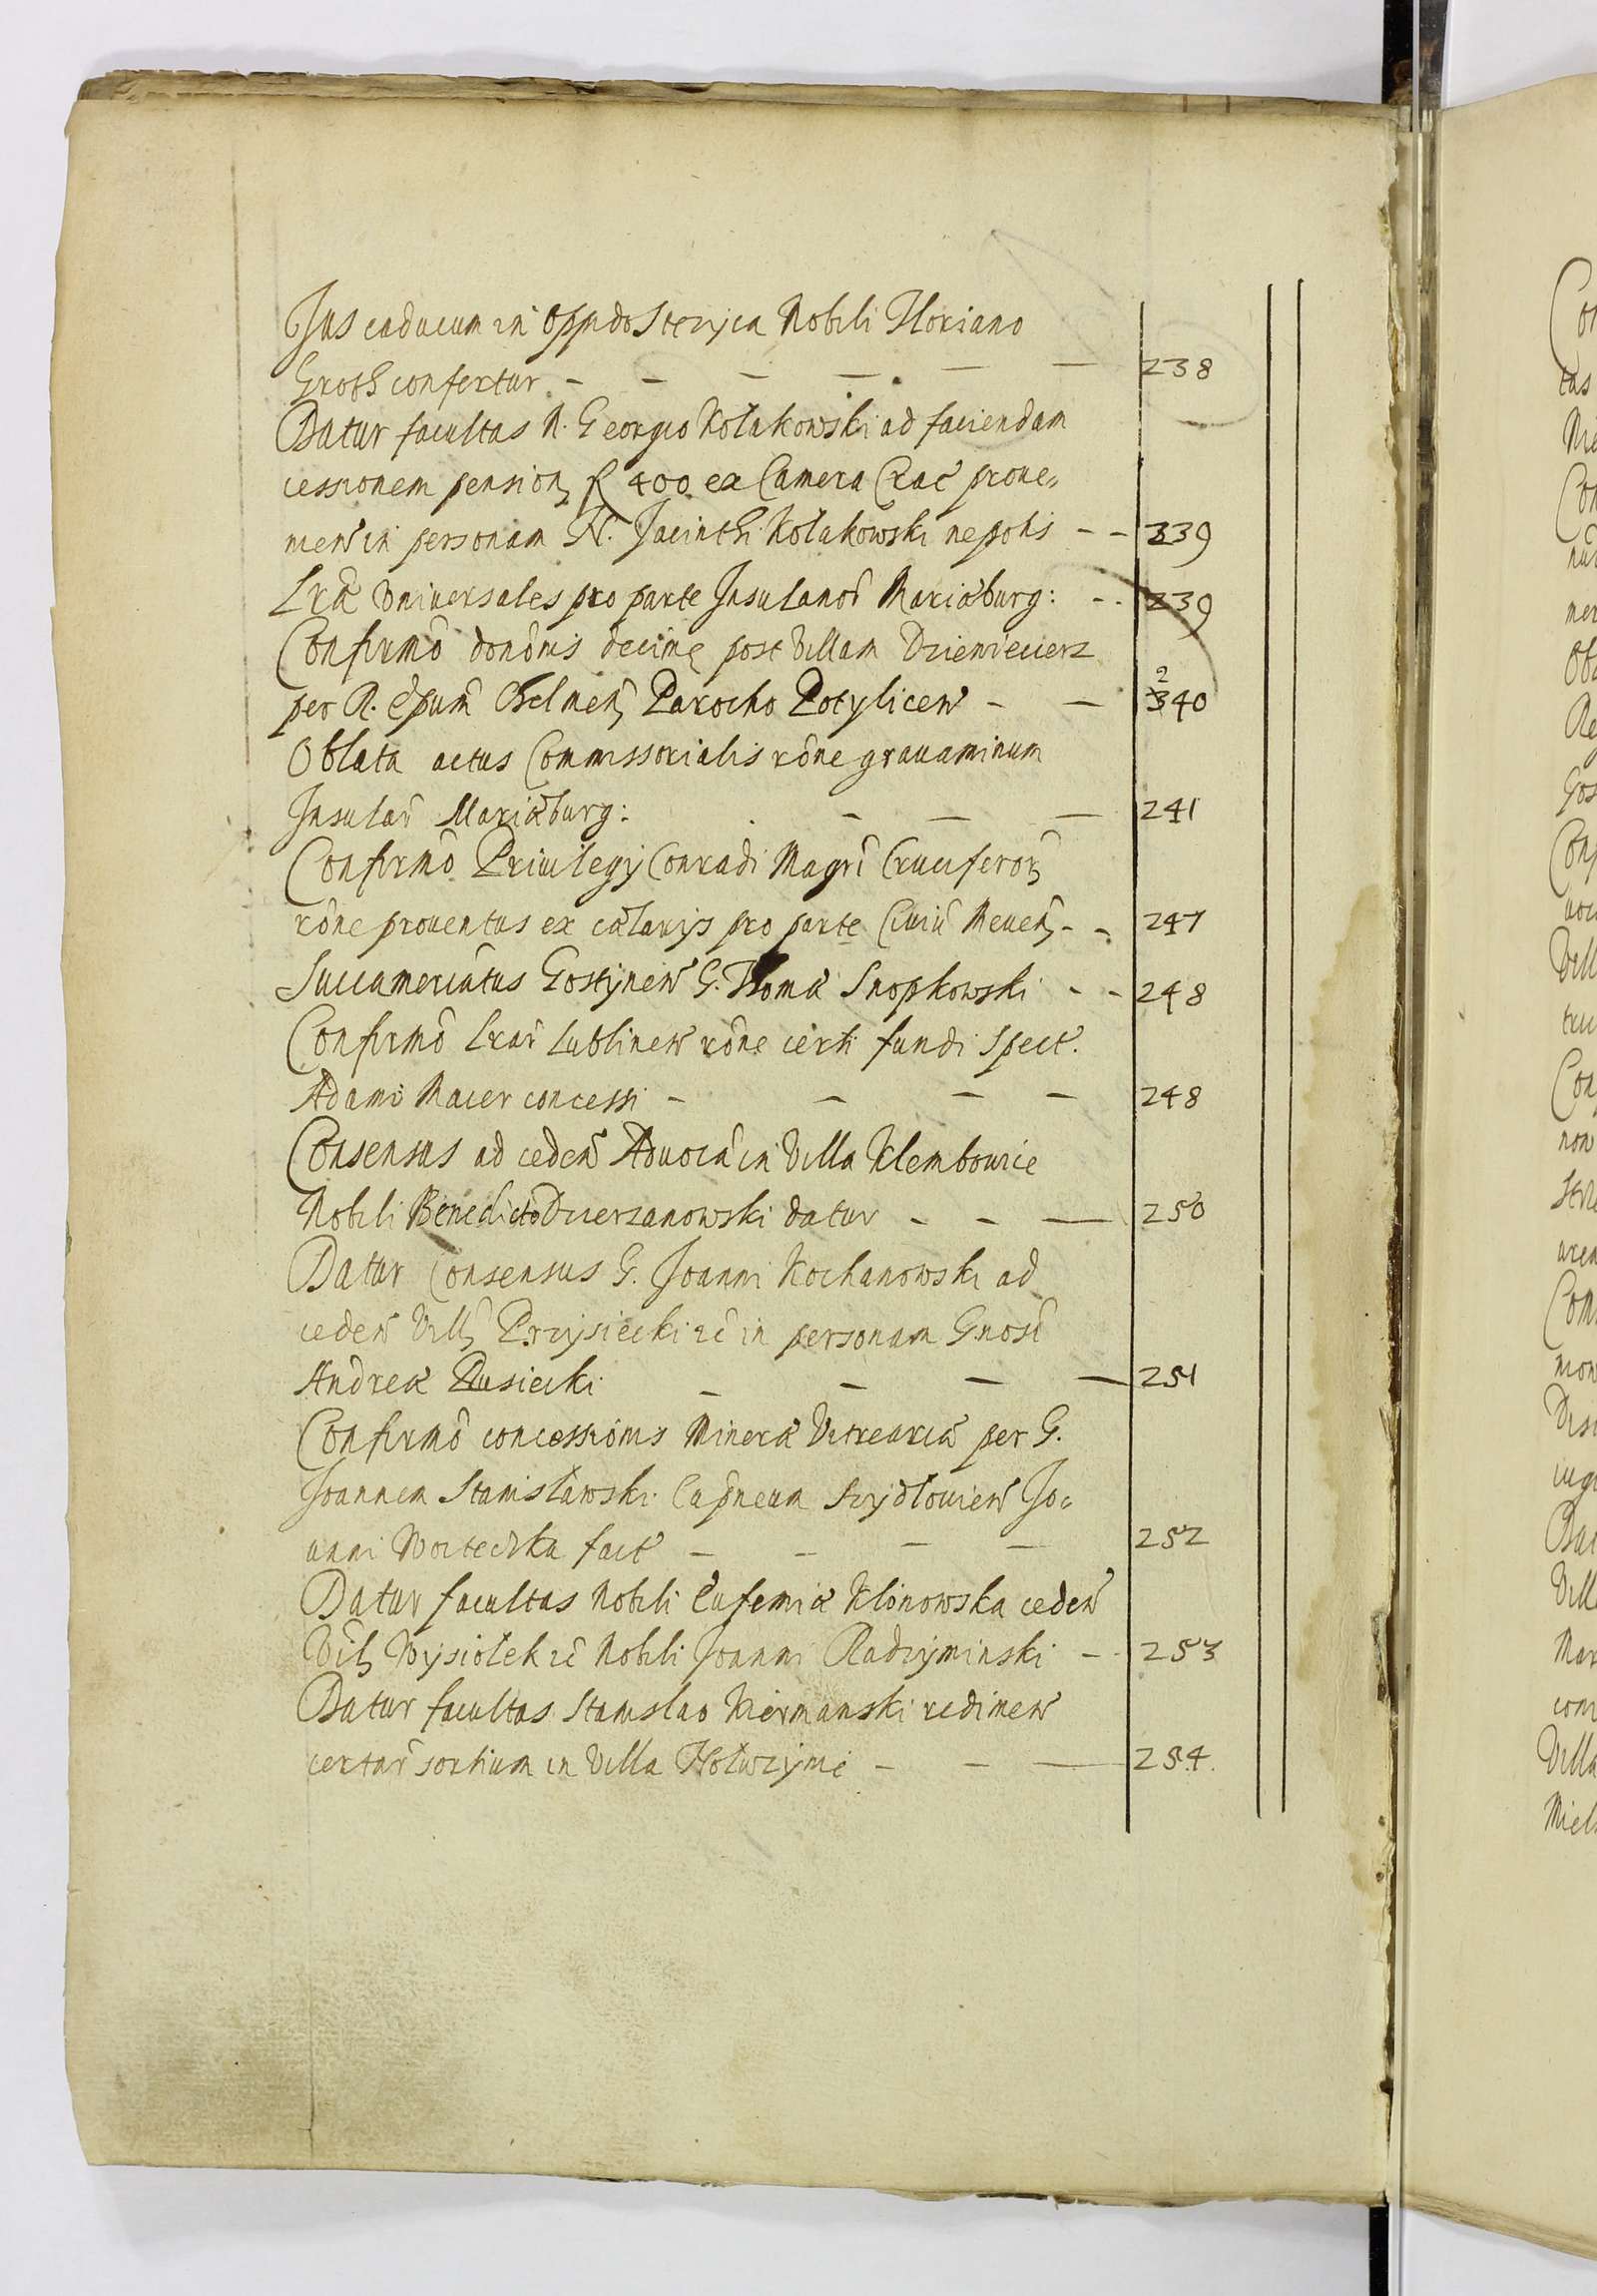 Jus caducum in Oppido Steżyca Nobili Floriano
Groth confertur - - - - - - 238
Datur facultas N. Georgio Kołakowski ad faciendam
cessionem pension, fl 400 ex Camera Crac̄ proue-
nien̄ in personam N. Jacinthi Kołakowski nepotis - - 239
Lrae Vniuersales pro parte Insulanor̄ Mariaeburg: - - 239
Confirmō donōnis decimę post Villam Dzieniecierz
per R. Epum̄ Chelmen, Parocho Potylicen̄ - - 240
Oblata actus Commissorialis rōne grauaminum
Insular̄ Mariaeburg: - - - 241
Confirmō Priuilegij Conradi Magri Cruciferor,
rōne prouentus ex calarijs pro parte Ciuiū Meuen, - - 247
Succameriatus Gostynen̄ G. Thomae Snopkowski - - 248
Confirmō Lrar̄ Lublinen̄ rōne certi fundi Spect.
Adamo Macer concessi - - - - 248
Consensus ad ceden̄ Aduocā in Villa Klembowice
Nobili Benedicto Dzierzanowski datur - - - 250
Datur Consensus G. Joanni Kochanowski ad
ceden̄ Vill, Przysiecki zc̄ in personam Gnosi
Andreae Rusiecki - - - - 251
Confirmō concessionis Minerae Vitreariae per G.
Joannem Stanisławski Capneum Szydłouien̄ Jo-
anni Wociechka fact - - - - 252
Datur facultas Nobili Eufemiae Klonowska ceden̄
Vil, Wysiołek zc̄ Nobili Joanni Radzyminski - - 253
Datur facultas Stanislao Niermanski redimen̄
certar̄ sortium in Villa Hołuczyme - - - 254.